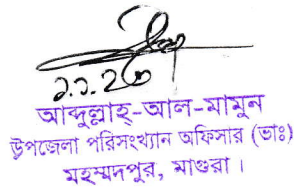 আব্দুল্লাহ-আল-মামুন
উপজেলা পরিসংখ্যান অফিসার (ভাঃ)
মহম্মদপুর, মাগুরা।